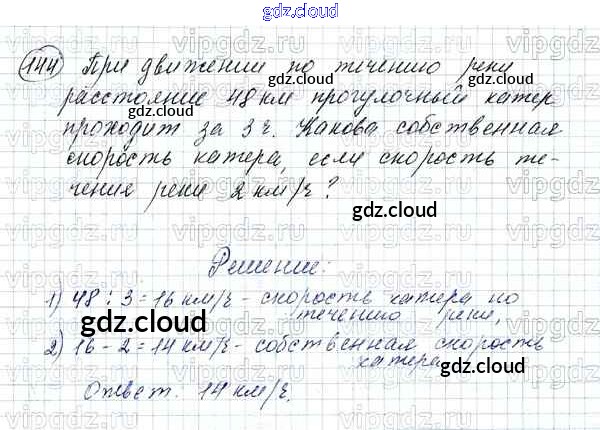 gdz.cloud
144 При движении по течению реки
gdz.cloud
расстояние 48 км прогулочный катер
проходит за 3 ч. Какова собственная
скорость катера, если скорость те-
чения реки 2 км/ч?
gdz.cloud
gdz.cloud
Решение:
1) 48 : 3 = 16 км/ч - скорость катера по
течению реки,
gdz.cloud
gdz.cloud
2) 16 - 2 = 14 км/ч - собственная скорость
катера
gdz.cloud
Ответ: 14 км/ч.